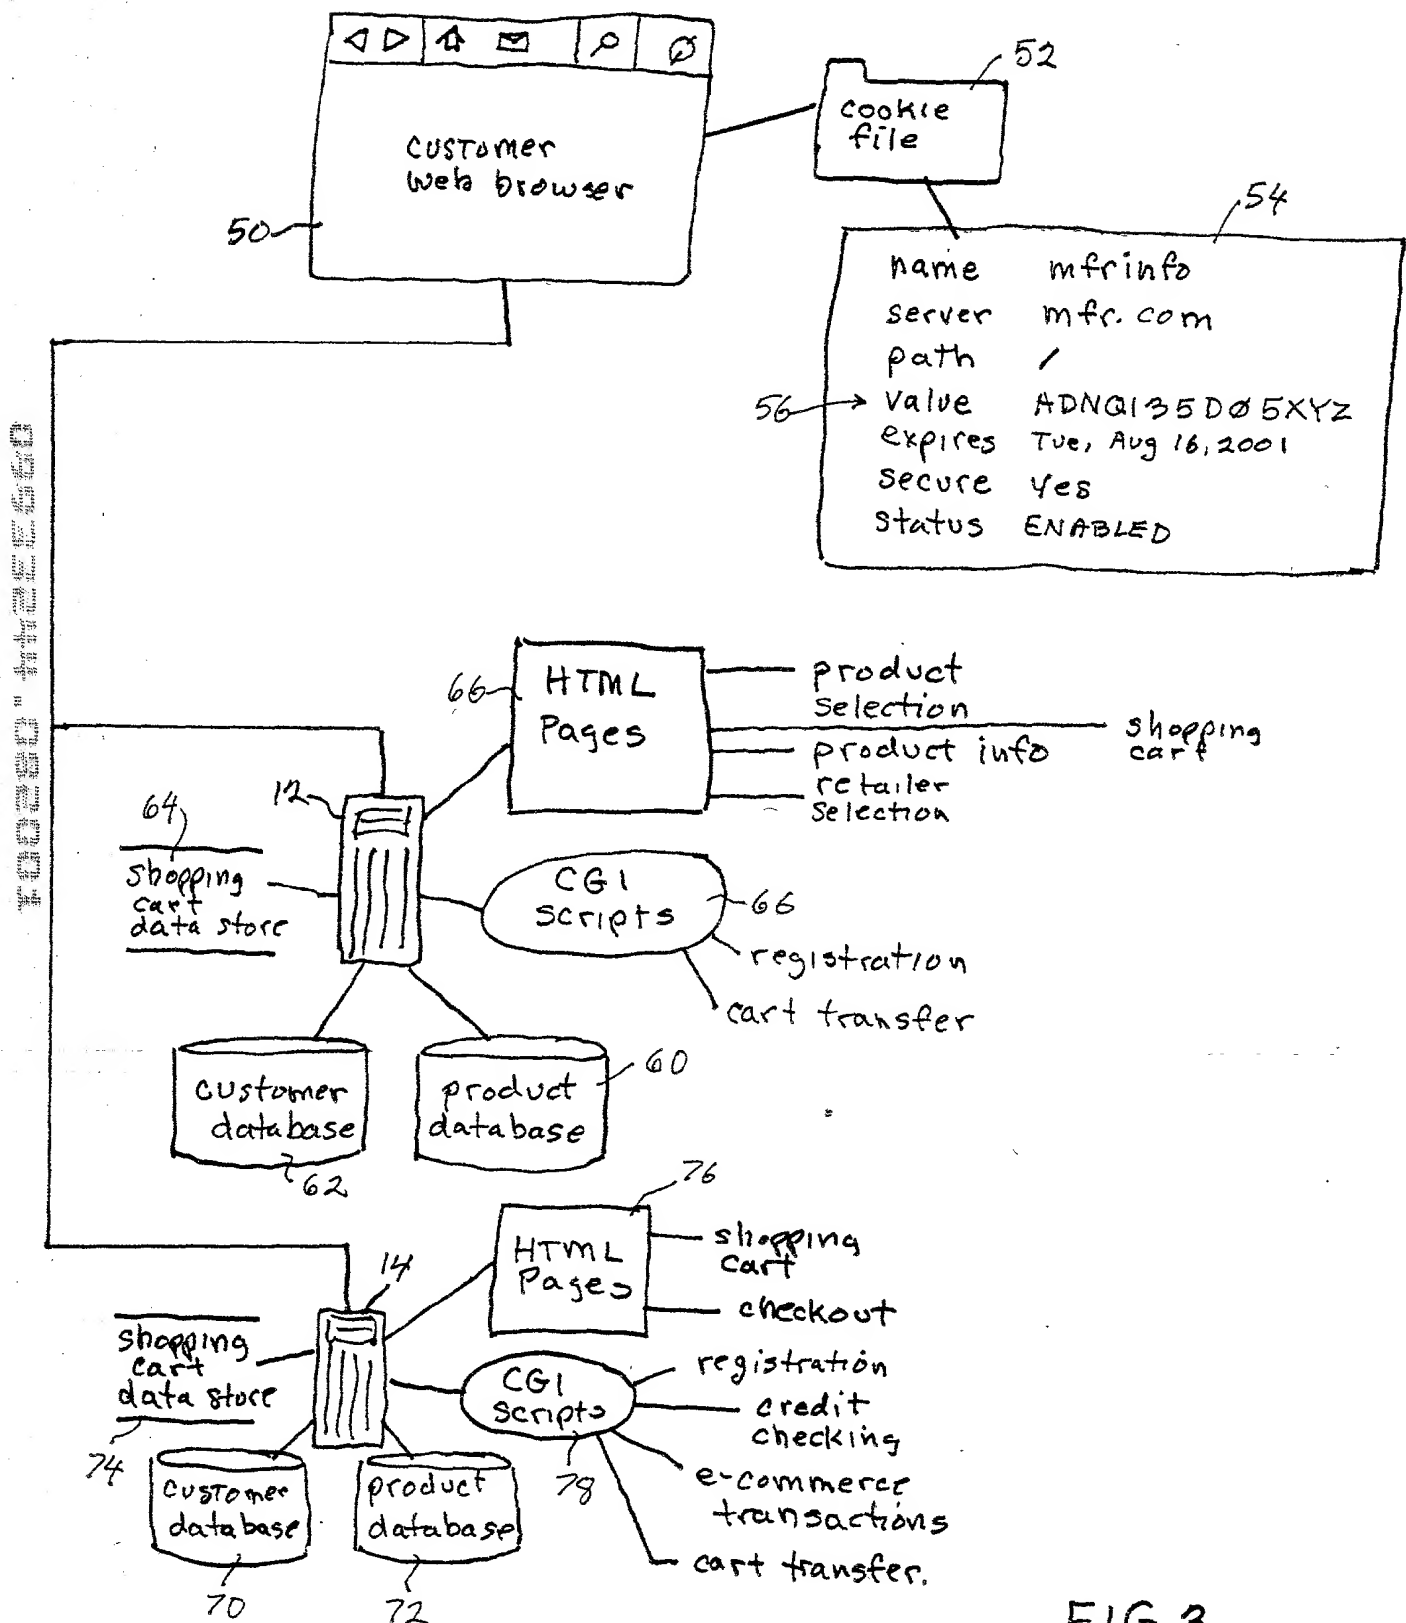 customer
web browser
50
cookie
file
52
54
name mfrinfo
server mfr.com
path /
56 value ADNQ135DØ5XYZ
expires Tue, Aug 16, 2001
secure Yes
status ENABLED
09933244.082001
66
HTML
Pages
product
selection
shopping
cart
product info
retailer
selection
12
64
shopping
cart
data store
CGI
scripts
66
registration
cart transfer
customer
database
62
product
database
60
76
HTML
Pages
shopping
cart
checkout
14
shopping
cart
data store
74
CGI
scripts
78
registration
credit
checking
e-commerce
transactions
cart transfer.
customer
database
70
product
database
72
FIG. 3